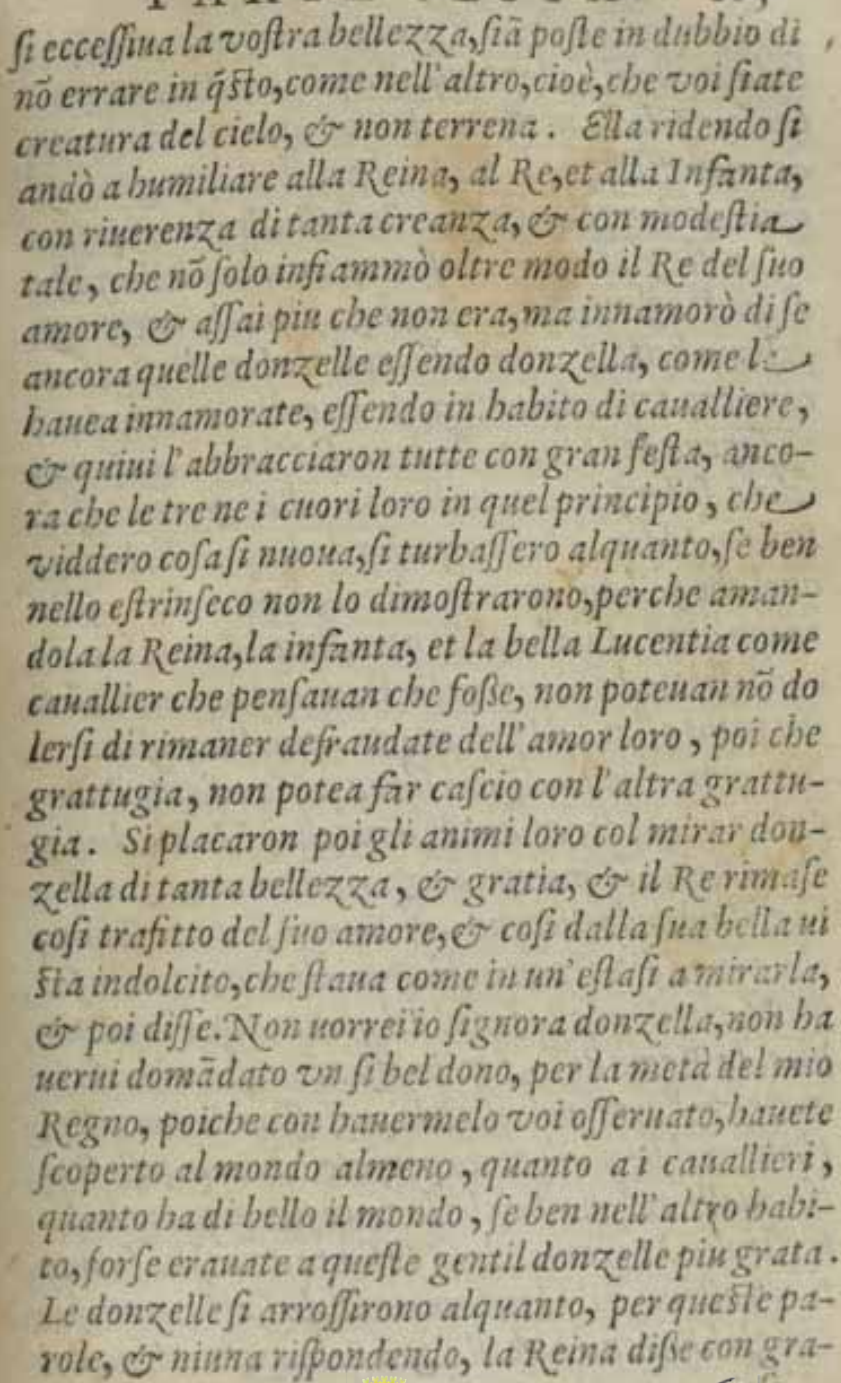 si eccessiua la vostra bellezza, siã poste in dubbio di
nõ errare in q̃sto, come nell'altro, cioè, che voi siate
creatura del cielo, & non terrena. Ella ridendo si
andò a humiliare alla Reina, al Re, et alla Infanta,
con riuerenza di tanta creanza, & con modestia
tale, che nõ solo infiammò oltre modo il Re del suo
amore, & assai piu che non era, ma innamorò di se
ancora quelle donzelle essendo donzella, come le
hauea innamorate, essendo in habito di caualliere,
& quiui l'abbracciaron tutte con gran festa, anco-
ra che le tre ne i cuori loro in quel principio, che
viddero cosa si nuoua, si turbassero alquanto, se ben
nello estrinseco non lo dimostrarono, perche aman-
dola la Reina, la infanta, et la bella Lucentia come
cauallier che pensauan che fosse, non poteuan nõ do
lersi di rimaner defraudate dell'amor loro, poi che
grattugia, non potea far cascio con l'altra grattu-
gia. Si placaron poi gli animi loro col mirar don-
zella di tanta bellezza, & gratia, & il Re rimase
cosi trafitto del suo amore, & cosi dalla sua bella ui
sta indolcito, che staua come in un'estasi a mirarla,
& poi disse. Non uorrei io signora donzella, non ha
uerui domãdato vn si bel dono, per la metà del mio
Regno, poiche con hauermelo voi osseruato, hauete
scoperto al mondo almeno, quanto a i cauallieri,
quanto ha di bello il mondo, se ben nell'altro habi-
to, forse erauate a queste gentil donzelle piu grata.
Le donzelle si arrossirono alquanto, per queste pa-
role, & niuna rispondendo, la Reina disse con gra-